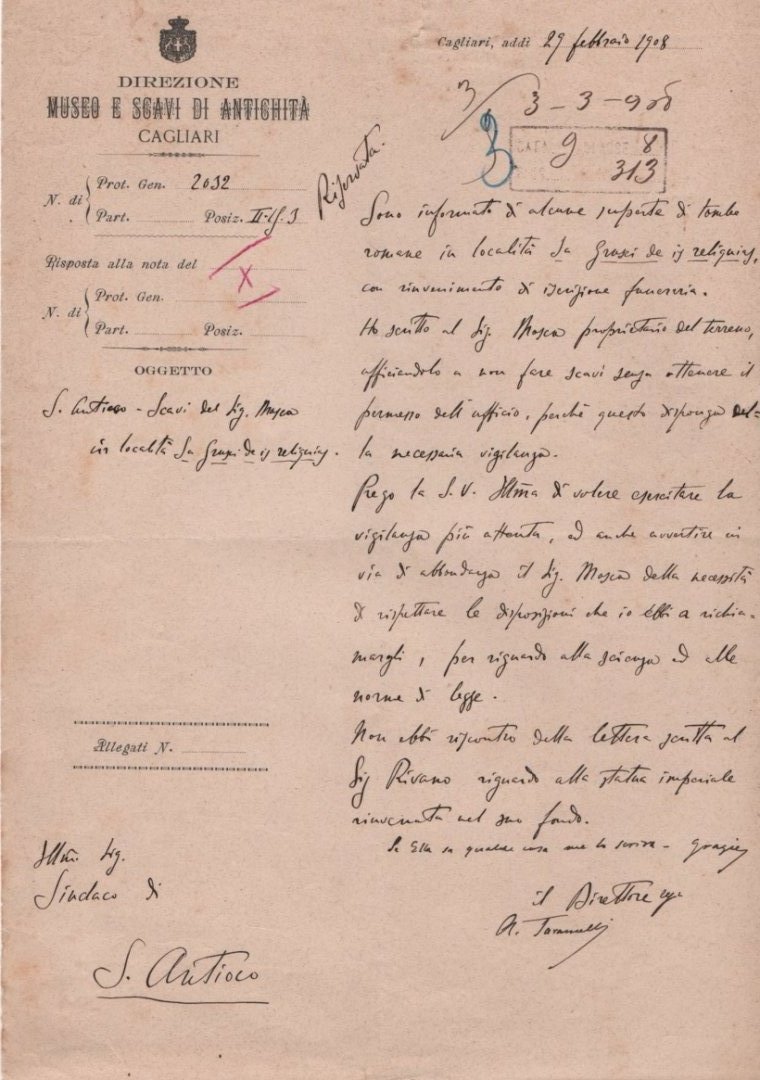 DIREZIONE
MUSEO E SCAVI DI ANTICHITÀ
CAGLIARI
N. di Prot. Gen. 2032
Part. Posiz. II.
Risposta alla nota del
X
N. di Prot. Gen.
Part. Posiz.
OGGETTO
S. Antioco - Scavi del Sig. Mosca
in località Sa Gruxi de is reliquias.
Allegati N.
Illmo Sig.
Sindaco di
S. Antioco
Cagliari, addì 29 febbraio 1908
3 - 3 - 908
3.
9 8
313
Riservata.
Sono informato di alcune scoperte di tombe
romane in località Sa Gruxi de is reliquias,
con rinvenimento di iscrizione funeraria.
Ho scritto al Sig. Mosca proprietario del terreno,
officiandolo a non fare scavi senza ottenere il
permesso dell'ufficio, perchè questo disponga del=
la necessaria vigilanza.
Prego la S. V. Illma di volere esercitare la
vigilanza più attenta, ed anche avvertire in
via di abbondanza il Sig. Mosca della necessità
di rispettare le disposizioni che io ebbi a richia-
margli, per riguardo alla scienza ed alle
norme di legge.
Non ebbi riscontro della lettera scritta al
Sig Rivano riguardo alla statua imperiale
rinvenuta nel suo fondo.
Se Ella sa qualche cosa me lo scriva - Grazie
il Direttore
A. Taramelli